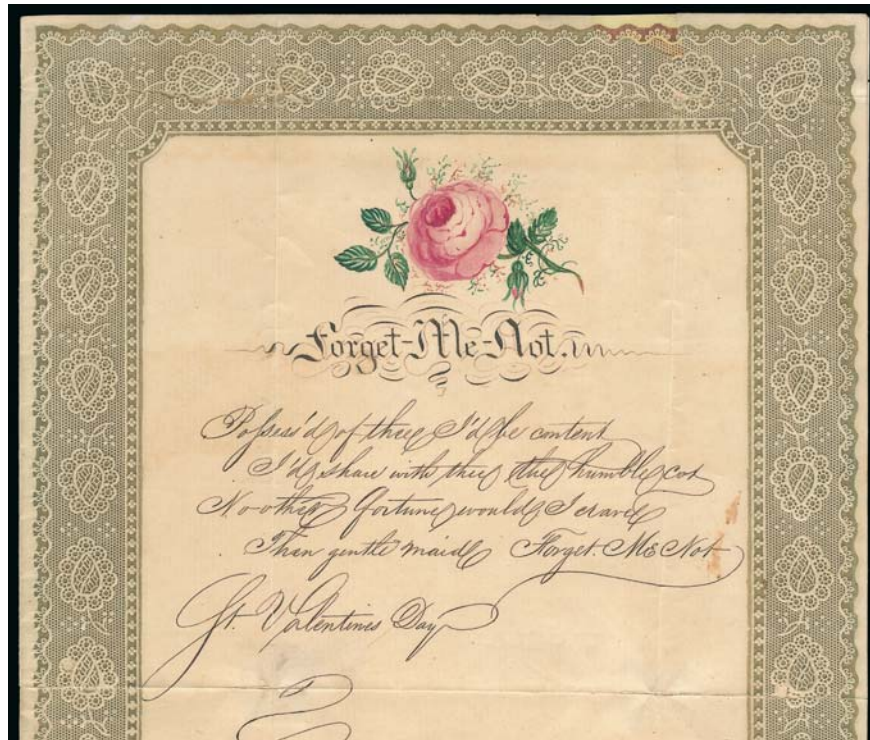 Forget-Me-Not.
Possess'd of thee I'd be content
I'd share with thee the humble cot
No other fortune would I crave
Than gentle maid Forget Me Not
St. Valentines Day